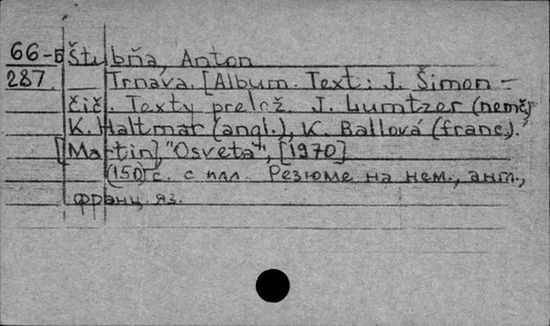 66-Б Štubňa, Anton
287. Trnava. [Album. Text: J. Šimon-
čič. Texty prelož. J. Lumtzer (nemč)
K. Haltmar (angl.), K. Ballová (franc).
[Martin] "Osveta", [1970]
(150) с. с илл. Резюме на нем., англ.,
франц. яз.